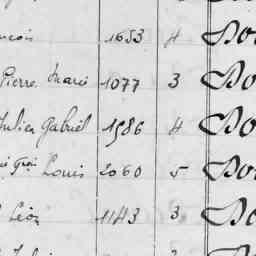 1653 4 Do
Pierre Marie 1077 3 Do
Julien Gabriel 1586 4 Do
Louis 2060 5 Do
Léon 1143 3 Do